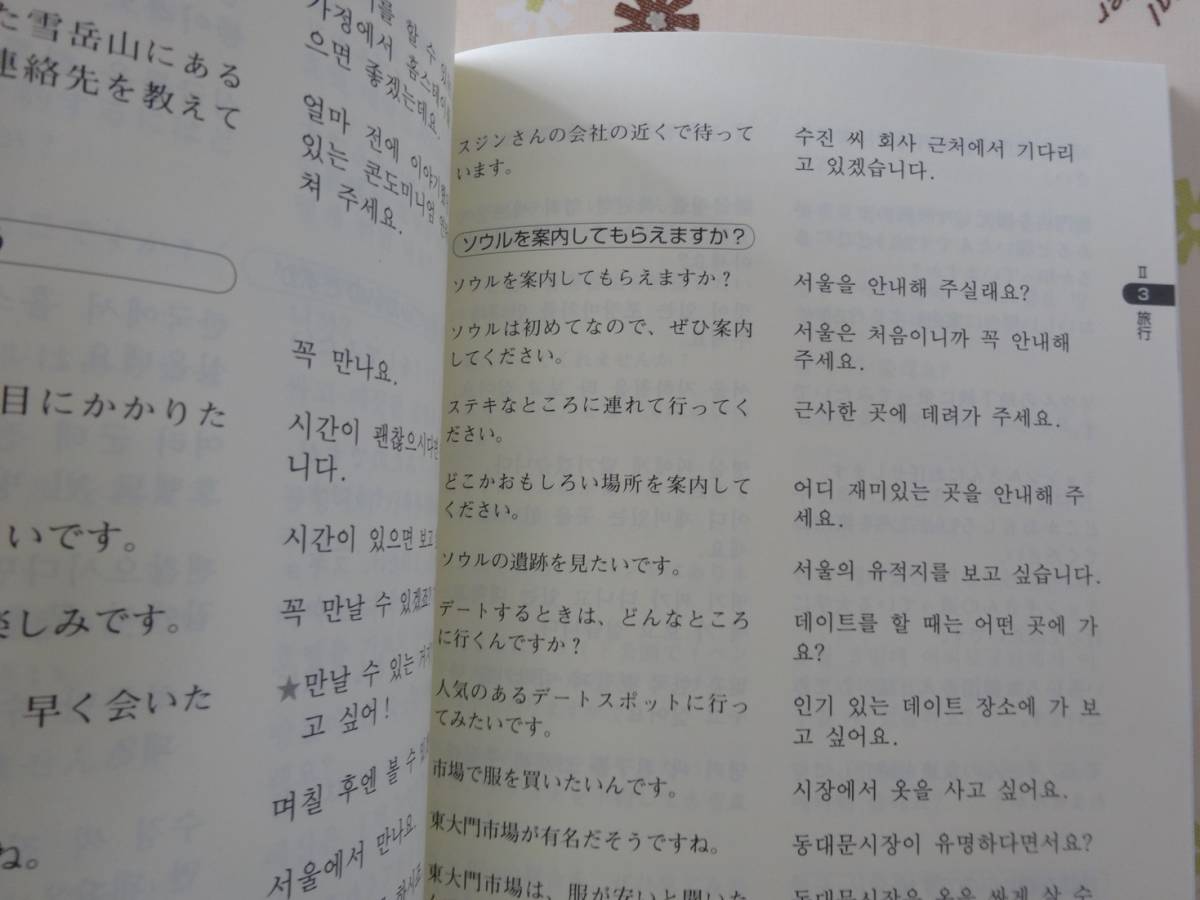 た雪岳山にある
連絡先を教えて
目にかかりた
いです。
楽しみです。
早く会いた
ね。
를 할 수 있
가정에서 홈스테이를
으면 좋겠는데요.
얼마 전에 이야기
있는 콘도미니엄
쳐 주세요.
꼭 만나요.
시간이 괜찮으시다면
니다.
시간이 있으면 보고
꼭 만날 수 있겠죠?
★만날 수 있는 거지
고 싶어!
며칠 후엔 볼 수 있
서울에서 만나요.
スジンさんの会社の近くで待って
います。
수진 씨 회사 근처에서 기다리
고 있겠습니다.
ソウルを案内してもらえますか?
ソウルを案内してもらえますか?
서울을 안내해 주실래요?
ソウルは初めてなので、ぜひ案内
してください。
서울은 처음이니까 꼭 안내해
주세요.
ステキなところに連れて行ってく
ださい。
근사한 곳에 데려가 주세요.
どこかおもしろい場所を案内して
ください。
어디 재미있는 곳을 안내해 주
세요.
ソウルの遺跡を見たいです。
서울의 유적지를 보고 싶습니다.
デートするときは、どんなところ
に行くんですか?
데이트를 할 때는 어떤 곳에 가
요?
人気のあるデートスポットに行っ
てみたいです。
인기 있는 데이트 장소에 가 보
고 싶어요.
市場で服を買いたいんです。
시장에서 옷을 사고 싶어요.
東大門市場が有名だそうですね。
동대문시장이 유명하다면서요?
東大門市場は、服が安いと聞いた
동대문시장은 옷을 싸게 살 수
Ⅱ
3
旅行